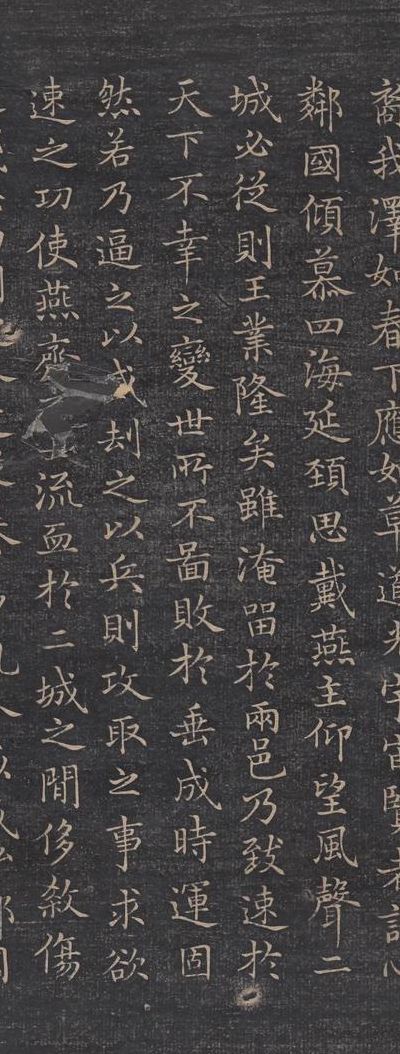 裔我澤如春下應如草道光宇宙賢者託心
鄰國傾慕四海延頸思戴燕主仰望風聲二
城必從則王業隆矣雖淹留於兩邑乃致速於
天下不幸之變世所不啚敗於垂成時運固
然若乃逼之以威劫之以兵則攻取之事求欲
速之功使燕齊之士流血於二城之間侈殺傷